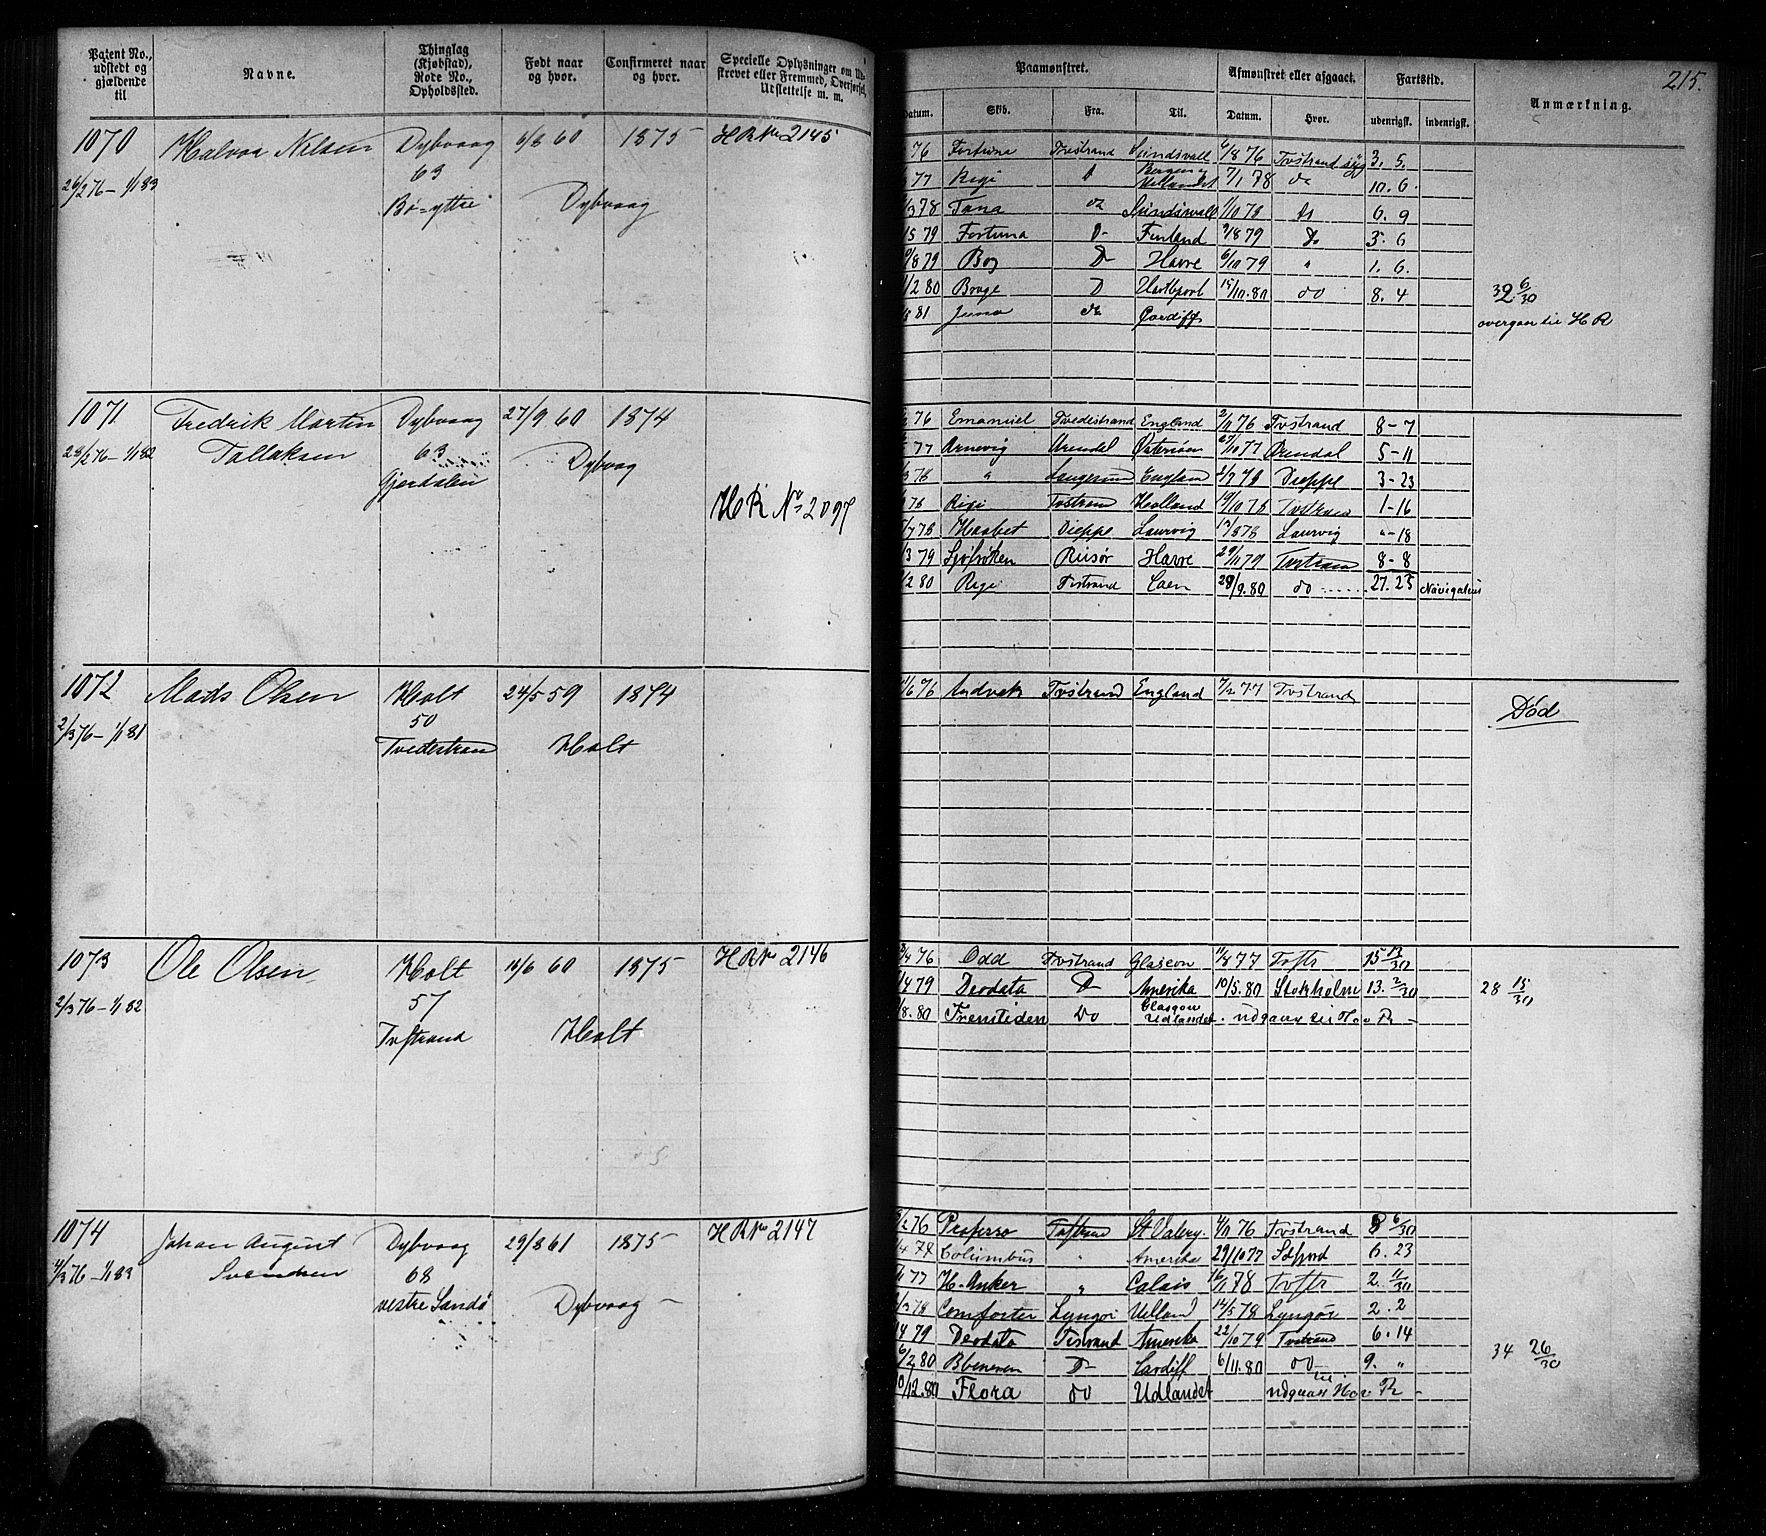 215.
Patent No., udstedt og gjældende til
Navne.
Thinglag (Kjøbstad), Rode No., Opholdssted.
Født naar og hvor.
Confirmeret naar og hvor.
Specielle Oplysninger om Udskrevet eller Fremmed, Overførsel, Udslettelse m. m.
Paamønstret.
Datum. Skib. Fra. Til.
Afmønstret eller afgaaet.
Datum. Hvor.
Fartstid.
udenrigsk. indenrigsk.
Anmærkning.
1070 Halvor Nilsen Dybvaag 6/8 60 1875 H R No 2145
26/2 76 – 1/1 83 63
Bo-yttre Dybvaag
76 Fortuna Tvestrand Sundsvall 6/8 76 Tvstrand 3. 5.
77 Rigi D Bergen Udlandet 7/1 78 do 10. 6.
/3 78 Tana do Sundsvall 1/10 78 do 6. 9
/5 79 Fortuna D- Finland 9/8 79 Do 3. 6
/8 79 Bog D- Havre 6/10 79 " 1. 6.
/2 80 Brage D Hartlpool 15/10. 80 do 8. 4
81 Juno do Cardiff
32 6/30
overgaar til H R
1071 Fredrik Martin Dybvaag 27/9 60 1874
28/2 76 – 1/1 82 Tallaksen 63 Dybvaag
Gjerdalen
H R No 2097
76 Emanuel Tvedestrand England 2/11 76 Tvstrand 8 – 7
77 Arnevig Arendal Østersøen 27/10 77 Arendal 5 – 11
/3 78 " Langesund England 2/7 78 Dieppe 3 – 23
78 Rigi Tvstrand Holland 19/10 78 Tvstrand 1 – 16
/7 78 Haabet Dieppe Laurvig 13/8 78 Laurvig " – 18
/3 79 Sjøfrøken Risør Havre 29/11 79 Tvstrand 8 – 8
/2 80 Rigi Tvstrand Caen 28/9. 80 do 27. 23 Navigations
1072 Mads Olsen Holt 24/5 59 1874
2/3 76 – 1/1 81 50
Tvedestrand Holt
/6 76 Andvak Tvstrand England 7/2 77 Tvstrand
Död
1073 Ole Olsen Holt 10/6 60 1875 H R No 2146
2/3 76 – 1/1 82 57
Tvstrand Holt
/4 76 Odd Tvstrand Glascou 11/8 77 Tvstr 15 13/30
/4 79 Deodata D- Amerika 10/5. 80 Stokholm 13. 2/30
/8. 80 Fremtiden Do Glasgou Udlandet udgaar til Hov R –
28 15/30
1074 Johan August Dybvaag 29/8 61 1875 – H R No 2147
4/3 76 – 1/1 83 Svendsen 68
vestre Sandö Dybvaag –
/2 76 Professo Tvstrand St Valery. 4/11 76 Tvstrand 8 6/30
/4 77 Columbus " Amerika 29/10 77 Sdfjord 6. 23
/11 77 H. Anker " Calais 16/1 78 Tvstr 2. 11/30
/3 78 Comforter Lyngör Udland 14/5 78 Lyngör 2. 2
/4 79 Deodata Tvstrand Amerika 22/10 79 Tvstrand 6. 14
6/2 80 Ebenezer D- Cardiff 6/11. 80 do 9. "
/12. 80 Flora do Udlandet udgaar til Hov R –
34 26/30